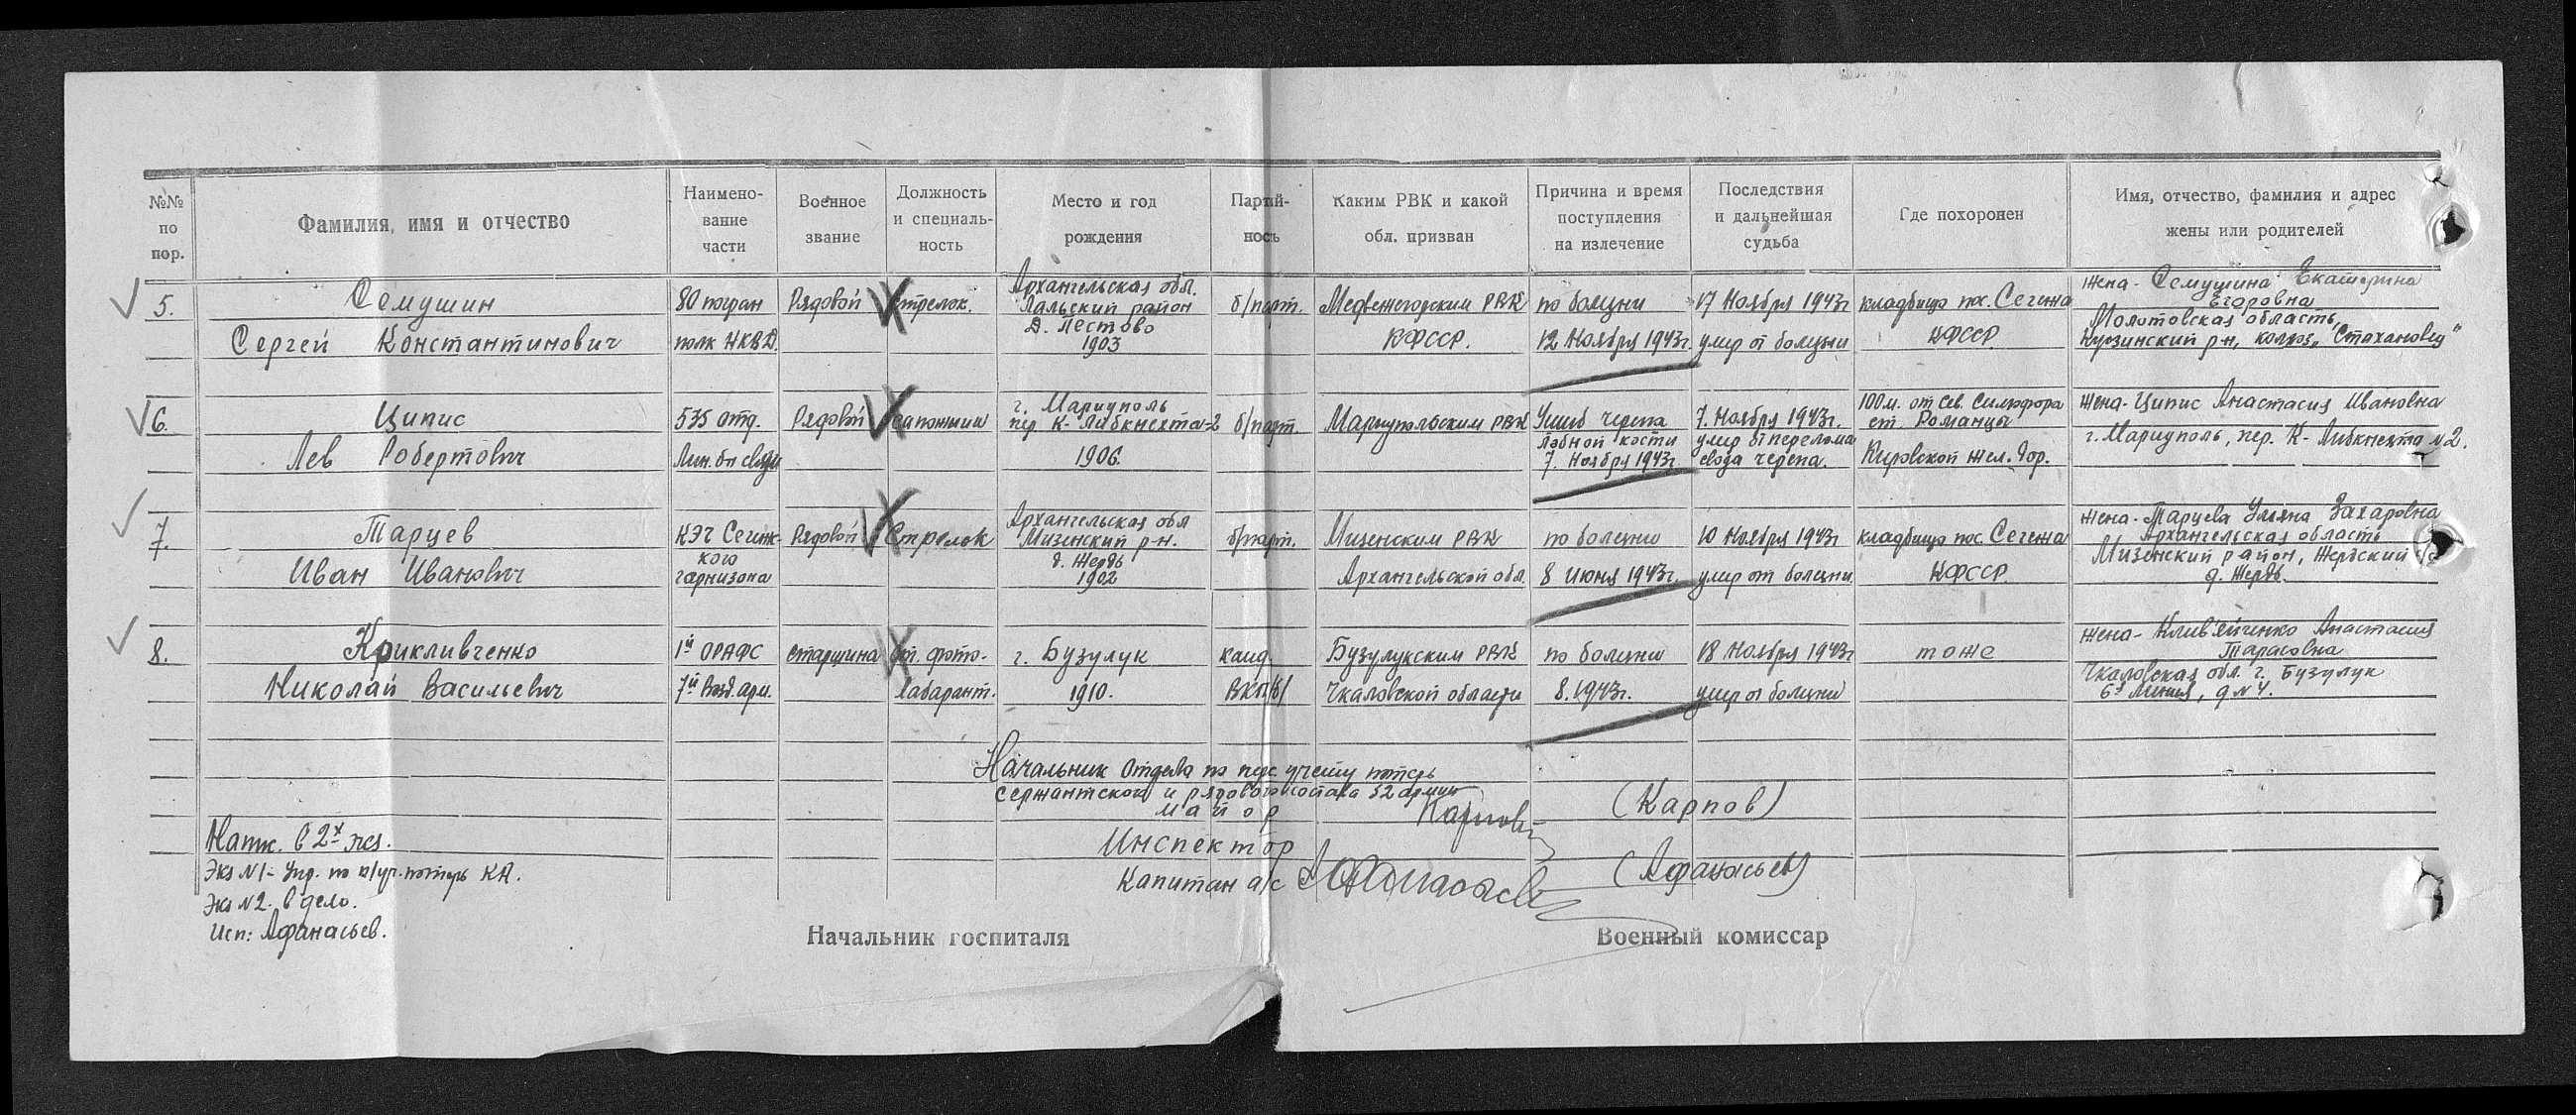 №№ по пор.
Фамилия, имя и отчество
Наимено-вание части
Военное звание
Должность и специаль-ность
Место и год рождения
Партий-ность
Каким РВК и какой обл. призван
Причина и время поступления на излечение
Последствия и дальнейшая судьба
Где похоронен
Имя, отчество, фамилия и адрес жены или родителей
5.
Семушин
Сергей Константинович
80 погран
полк НКВД.
Рядовой
стрелок.
Архангельская обл.
Лальский район
д. Пестово
1903
б/парт.
Медвежегорским РВК
КФССР.
по болезни
12 Ноября 1943г.
17 Ноября 1943г
умер от болезни
кладбище пос. Сегежа
КФССР
Жена - Семушина Екатерина
Егоровна
Молотовская область,
р-н, колхоз "Стахановец"
6.
Ципис
Лев Робертович
535 отд.
Лин. б-н связи
Рядовой
сапожник
г. Мариуполь
пер. К-Либкнехта-2
1906.
б/парт.
Мариупольским РВК
Ушиб черепа
Лобной кости
7. Ноября 1943г
7. Ноября 1943г.
умер от перелома
свода черепа.
100 м. от сев. семафора
ст. Романцы
Кировской жел. дор.
Жена - Ципис Анастасия Ивановна
г. Мариуполь, пер. К-Либкнехта №2.
7.
Тарцев
Иван Иванович
КЭЧ Сегеж-
кого
гарнизона
Рядовой
Стрелок
Архангельская обл
Мизенский р-н.
д. Жердь
1902
б/парт.
Мизенским РВК
Архангельской обл.
по болезни
8 Июня 1943г.
10 Ноября 1943г
умер от болезни.
кладбище пос. Сегежа
КФССР.
Жена - Тарцева Ульяна Захаровна
Архангельская область
Мизенский район, Жердский с/с
д. Жердь.
8.
Крикливченко
Николай Васильевич
1й ОРАФС
7й Возд. арм.
старшина
ст. фото-
лаборант.
г. Бузулук
1910.
канд.
ВКП/б/
Бузулукским РВК
Чкаловской области
по болезни
8.1943г.
18 Ноября 1943г
умер от болезни
тоже
Жена - Анастасия
Тарасовна
Чкаловская обл. г. Бузулук
6я Линия, д № 4.
Начальник отдела по перс. учету потерь
сержантского и рядового состава 32 армии
майор Карпов (Карпов)
Инспектор
Капитан а/с (Афанасьев)
Напеч. в 2х экз.
Экз №1 - Упр. по п/уч. потерь КА.
Экз №2. в дело.
Исп: Афанасьев.
Начальник госпиталя
Военный комиссар